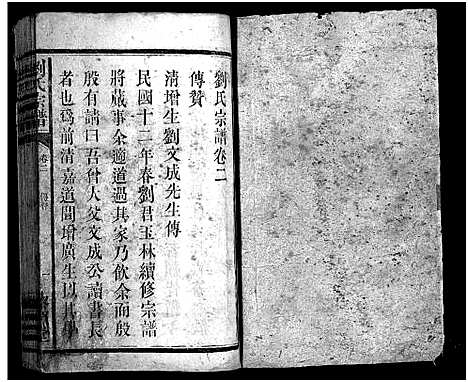 劉氏宗譜卷二
傳贊
清增生劉文成先生傳
民國十二年春劉君玉林續修宗譜
將蕆事余適道過其家乃飲余而殷
殷有請曰吾曾大父文成公讀書長
者也爲前清嘉道間增廣生以其學
劉氏宗譜
卷二